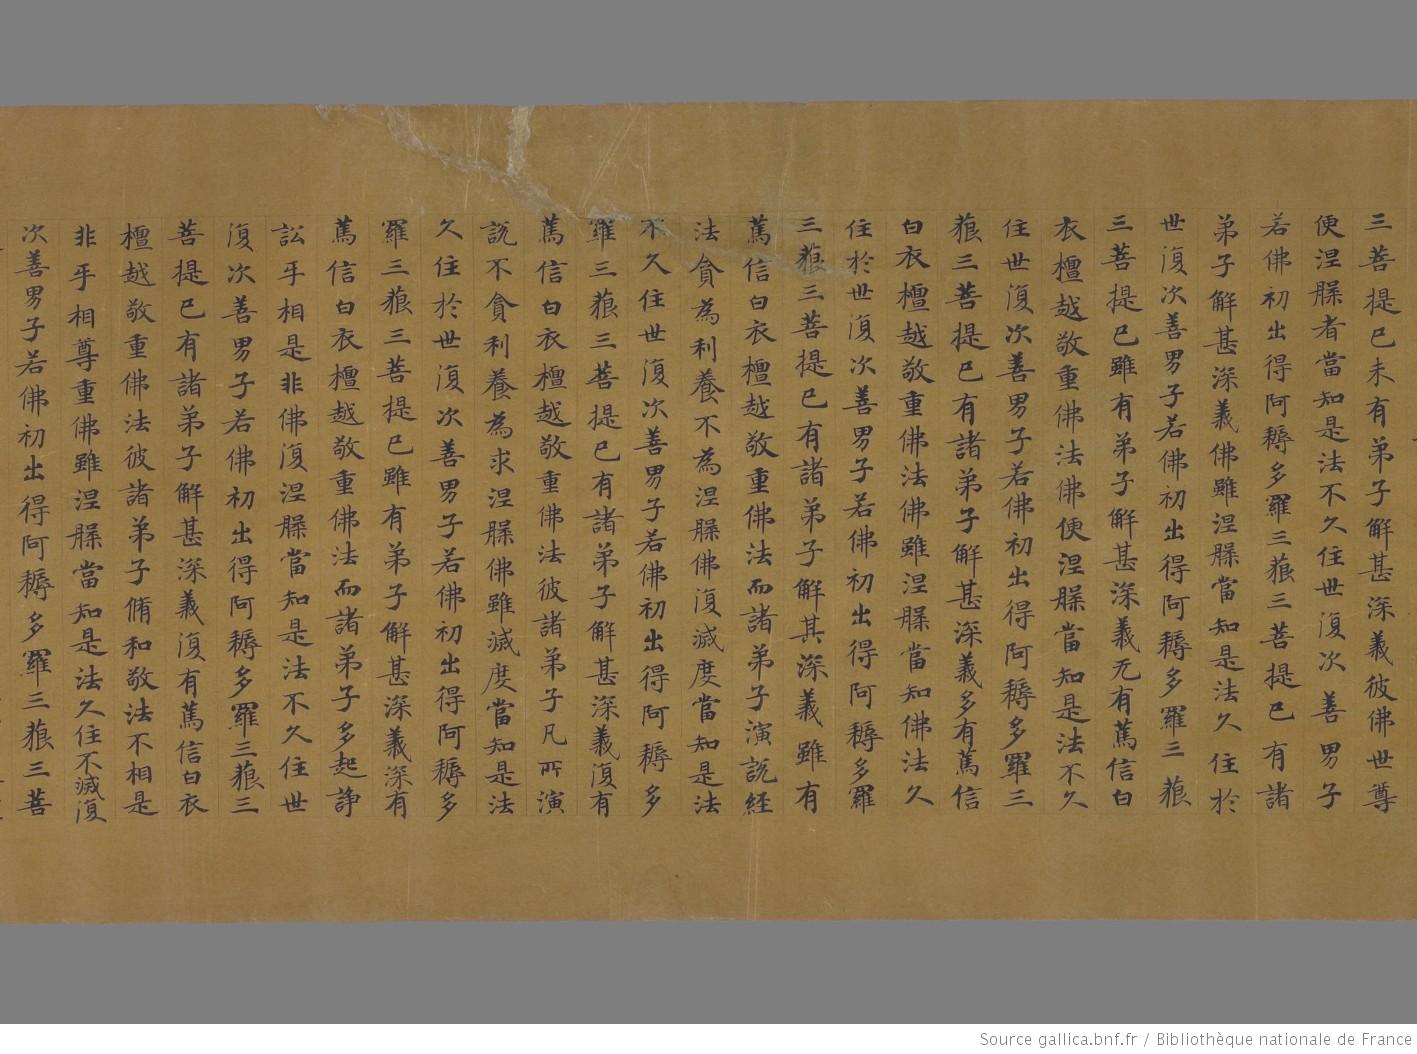 三菩提已未有弟子解甚深義彼佛世尊
便涅槃者當知是法不久住世復次善男子
若佛初出得阿耨多羅三藐三菩提已有諸
弟子解甚深義佛雖涅槃當知是法久住於
世復次善男子若佛初出得阿耨多羅三藐
三菩提已雖有弟子解甚深義无有篤信白
衣檀越敬重佛法佛便涅槃當知是法不久
住世復次善男子若佛初出得阿耨多羅三
藐三菩提已有諸弟子解甚深義多有篤信
白衣檀越敬重佛法佛雖涅槃當知佛法久
住於世復次善男子若佛初出得阿耨多羅
三藐三菩提已有諸弟子解其深義雖有
篤信白衣檀越敬重佛法而諸弟子演說經
法貪為利養不為涅槃佛復滅度當知是法
不久住世復次善男子若佛初出得阿耨多
羅三藐三菩提已有諸弟子解甚深義復有
篤信白衣檀越敬重佛法彼諸弟子凡所演
說不貪利養為求涅槃佛雖滅度當知是法
久住於世復次善男子若佛初出得阿耨多
羅三藐三菩提已雖有弟子解甚深義深有
篤信白衣檀越敬重佛法而諸弟子多起諍
訟乎相是非佛復涅槃當知是法不久住世
復次善男子若佛初出得阿耨多羅三藐三
菩提已有諸弟子解甚深義復有篤信白衣
檀越敬重佛法彼諸弟子脩和敬法不相是
非乎相尊重佛雖涅槃當知是法久住不滅復
次善男子若佛初出得阿耨多羅三藐三菩
Source gallica.bnf.fr / Bibliothèque nationale de France